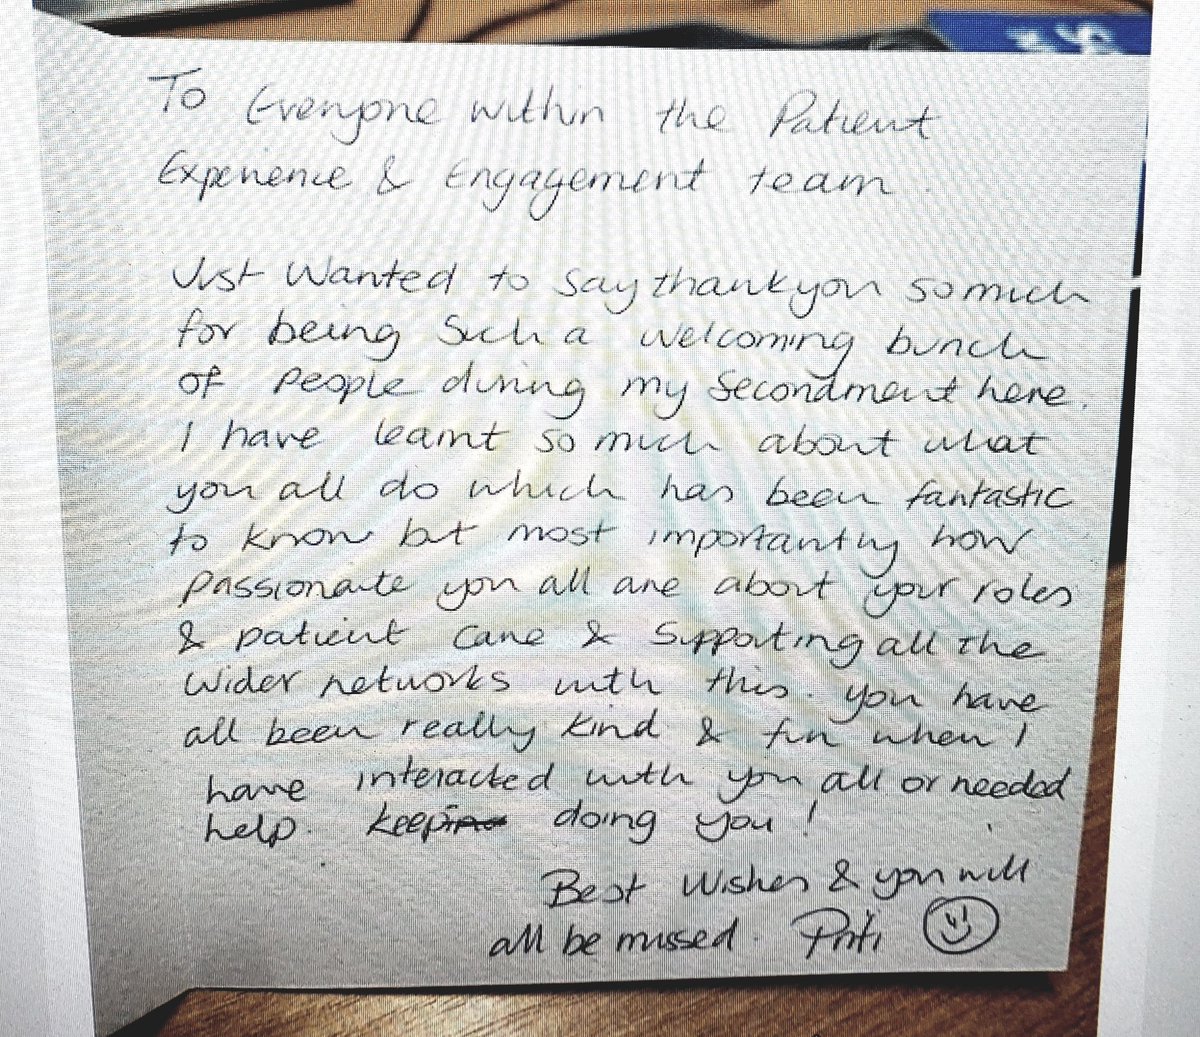 To Everyone within the Patient
Experience & Engagement team.
Just Wanted to say thankyou so much
for being such a welcoming bunch
of people during my Secondment here.
I have learnt so much about what
you all do which has been fantastic
to know but most importantly how
passionate you all are about your roles
& patient care & Supporting all the
wider networks with this. you have
all been really kind & fun when I
have interacted with you all or needed
help. keep doing you!
Best Wishes & you will
all be missed. Priti